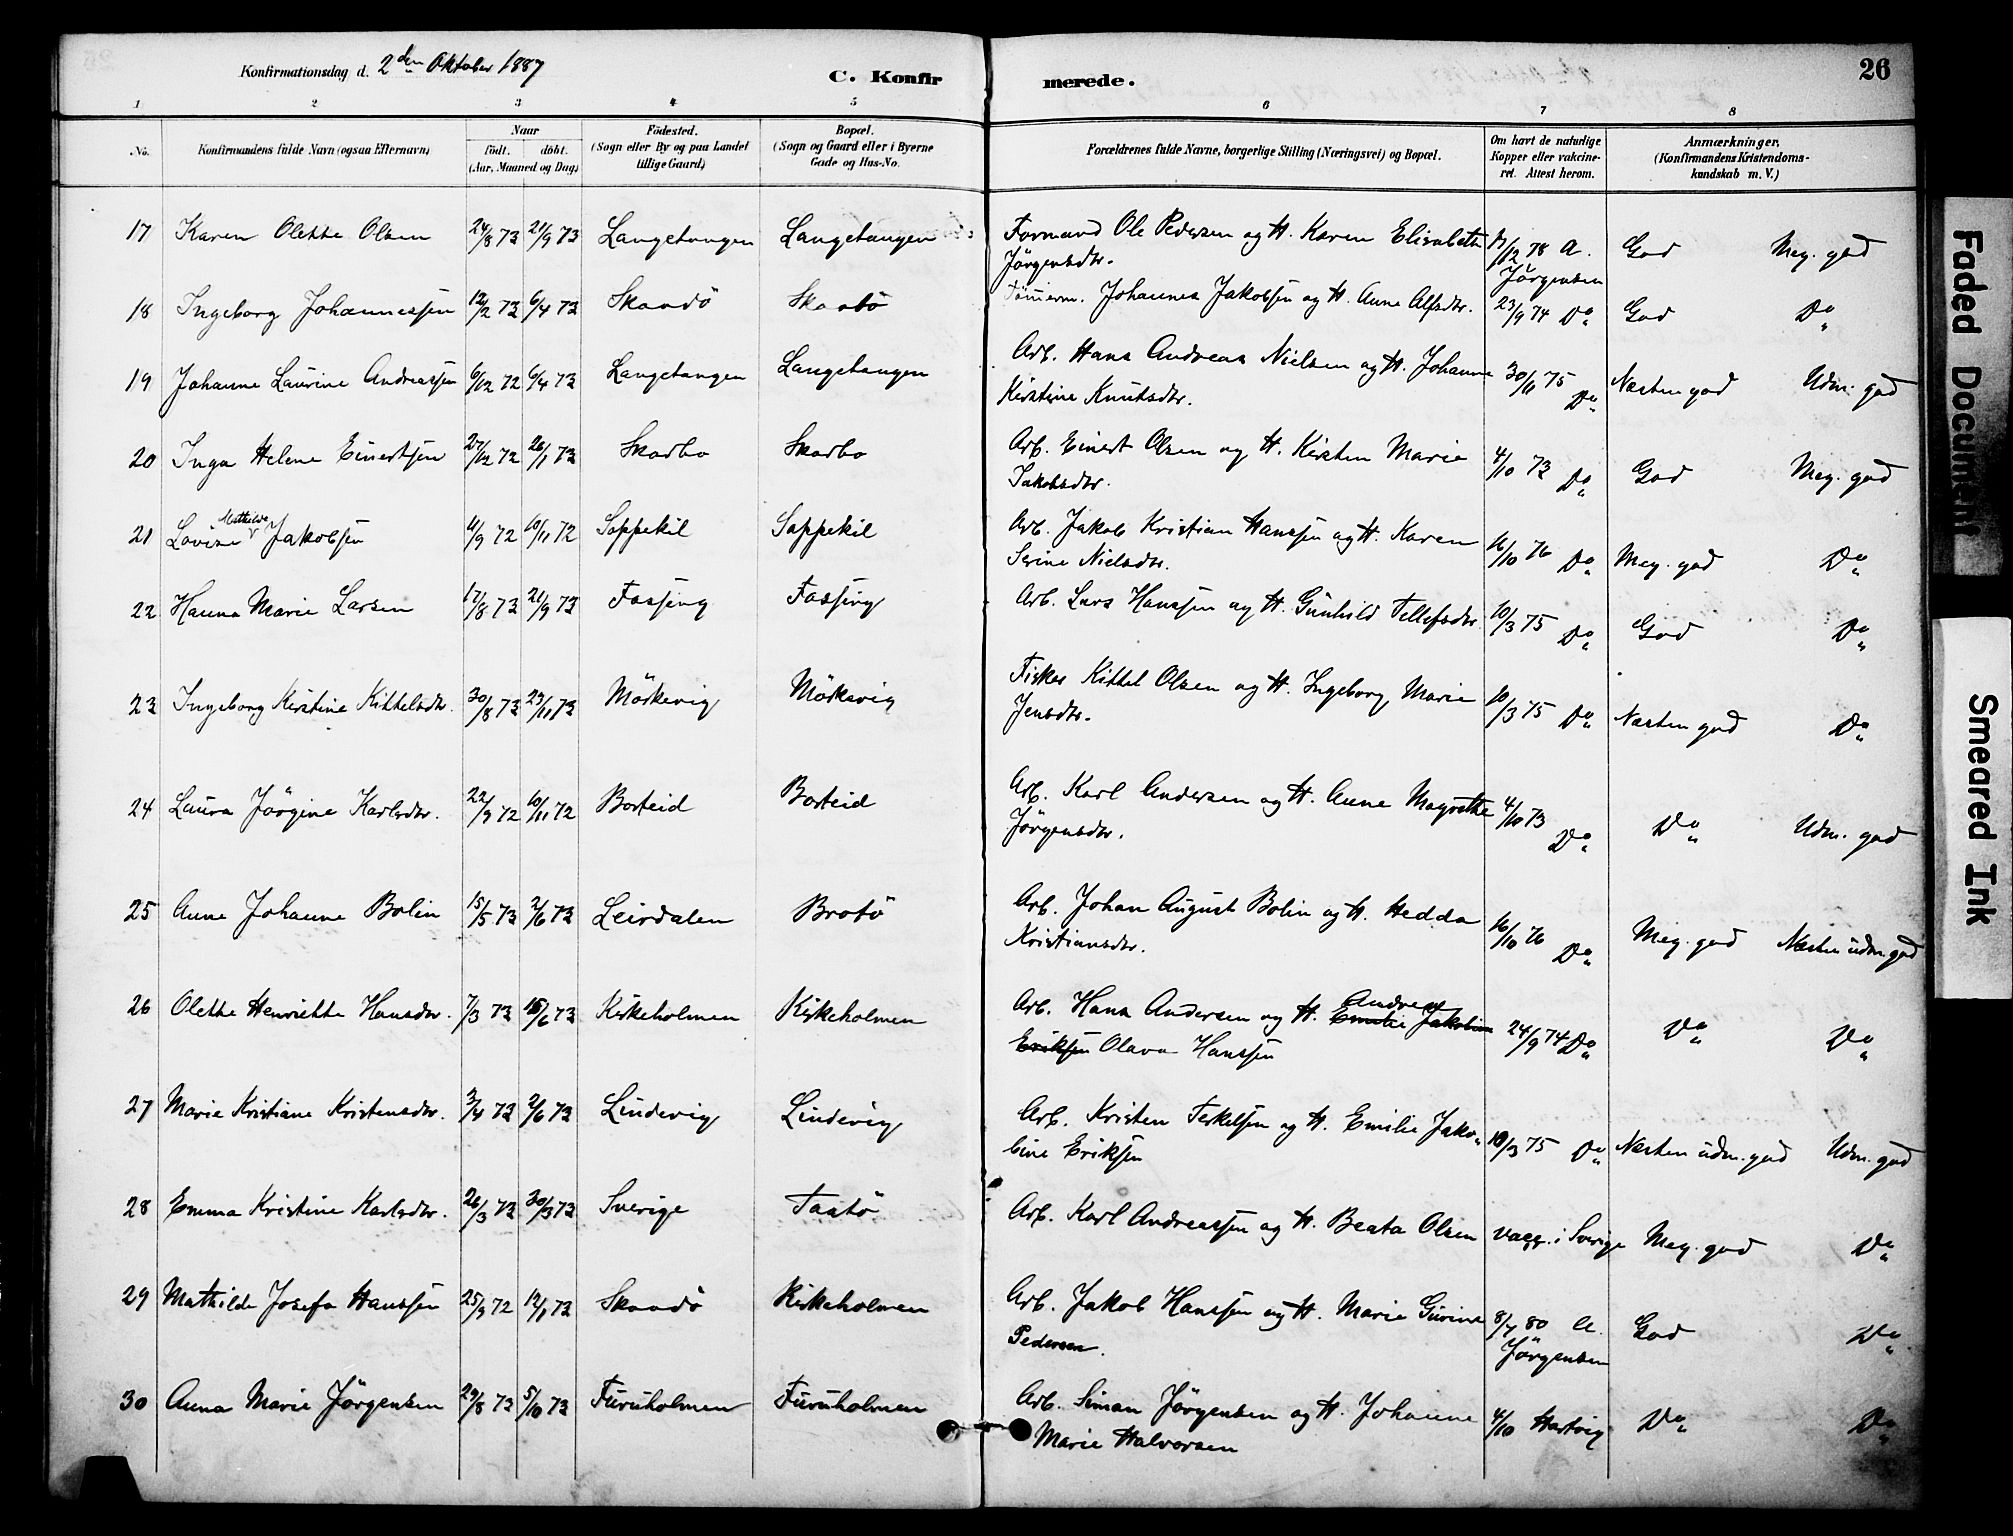 Konfirmationsdag d. 2den Oktober 1887
C. Konfirmerede.
26
1 2 3 4 5 6 7 8
No. Konfirmandens fulde Navn (ogsaa Efternavn) Naar født. døbt. (Aar, Maaned og Dag) Födested. (Sogn eller By og paa Landet tillige Gaard) Bopæl. (Sogn og Gaard eller i Byerne Gade og Hus-No. Forældrenes fulde Navne, borgerlige Stilling (Næringsvei) og Bopæl. Om havt de naturlige Kopper eller vakcineret. Attest herom. Anmærkninger. (Konfirmandens Kristendomskundskab m. V.)
17 Karen Olette Olsen 24/8 73 21/9 73 Langetangen Langetangen Formand Ole Pedersen og H. Karen Elisabeth 17/12 78 A. God Meg. god
Jörgensdtr. Jörgensen
18 Ingeborg Johannessen 12/2 73 6/4 73 Skaadö Skaatö Tömerm. Johannes Jakobsen og H. Anne Alfsdtr. 23/9 74 Do God Do
19 Johanne Laurine Andreassen 6/12 72 6/4 73 Langetangen Langetangen Arb. Hans Andreas Nielsen og H. Johanne 30/11 75 Do Næsten god Udm. god
Kirstine Knutsdtr.
20 Inga Helene Einertsen 27/12 72 26/1 73 Skarbo Skarbo Arb. Einert Olsen og H. Kirsten Marie 4/10 73 Do God Meg. god
Jakobsdtr.
21 Lovise Mathilde Jakobsen 11/9 72 10/11 72 Soppekil Soppekil Arb. Jakob Kristian Hanssen og H. Karen 16/10 76 Do Meg. god Do
Serine Nielsdtr.
22 Hanna Marie Larsen 17/8 73 21/9 73 Fossing Fossing Arb. Lars Hanssen og H. Gunhild Tellefsdtr. 10/3 75 Do God Do
23 Ingeborg Kirstine Kittelsdtr. 30/8 73 23/11 73 Mörkevig Mörkevig Fisker Kittel Olsen og H. Ingeborg Marie 10/3 75 Do Næsten god Do
Jensdtr.
24 Laura Jörgine Karlsdtr. 22/9 72 10/11 72 Borteid Borteid Arb. Karl Andersen og H. Anne Magrethe 4/10 73 Do Do Udm. god
Jörgensdtr.
25 Anne Johanne Bolin 15/5 73 2/6 73 Leirdalen Brotö Arb. Johan August Bolin og H. Hedda 16/10 76 Do Meg. god Næsten udm. god
Kristiansdtr.
26 Olette Henriette Hansdtr. 7/3 73 15/6 73 Kirkeholmen Kirkeholmen Arb. Hans Andersen og H. Emilie Jakobine Andrea 24/9 74 Do Do Do
Eriksen Olava Hanssen
27 Marie Kristiane Kristensdtr. 3/4 73 2/6 73 Lindevig Lindevig Arb. Kristen Terkelsen og H. Emilie Jako- 10/3 75 Do Næsten udm. god Udm. god
bine Eriksen
28 Emma Kristine Karlsdtr. 26/3 73 30/3 73 Sverige Taatö Arb. Karl Andreassen og H. Beata Olsen vacc. i Sverige Meg. god Do
29 Mathilde Josefa Hanssen 25/9 72 12/1 73 Skaadö Kirkeholmen Arb. Jakob Hanssen og H. Marie Gurine 8/7 80 A. God Do
Pedersen. Jörgensen
30 Anna Marie Jörgensen 29/8 73 5/10 73 Furuholmen Furuholmen Arb. Simon Jörgensen og H. Johanne 4/10 Hartvig Do Do
Marie Halvorsen
Faded Document
Smeared Ink